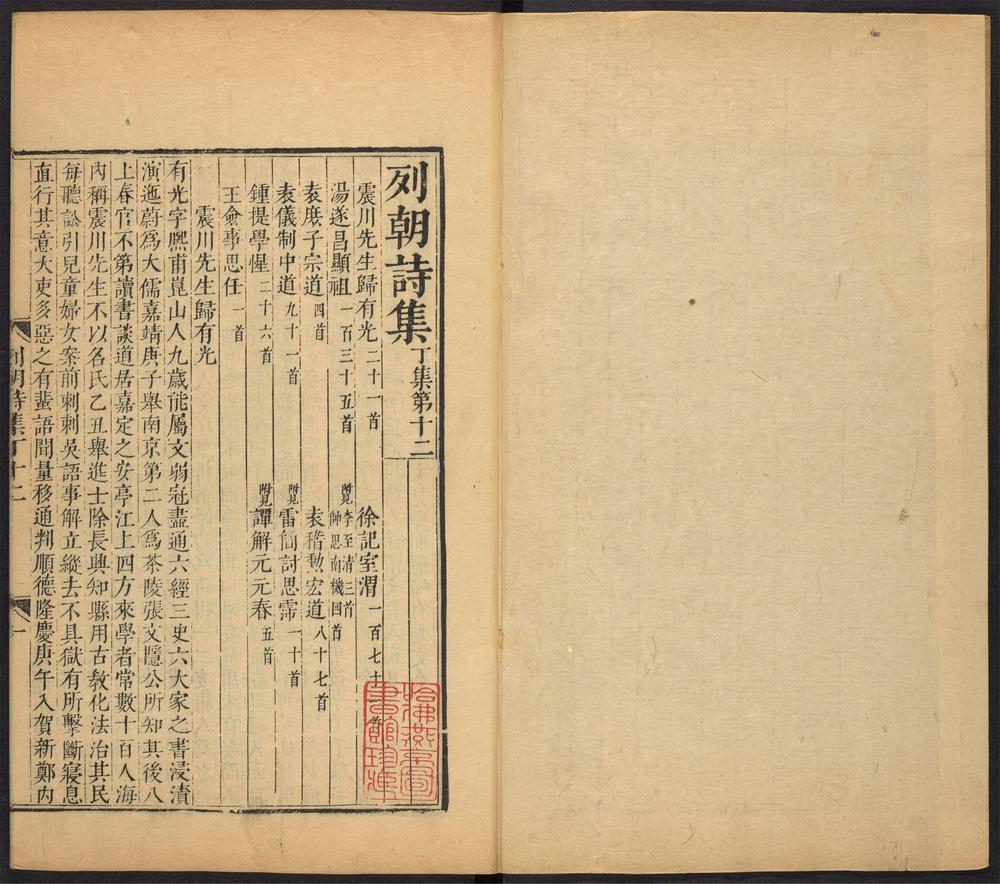 列朝詩集丁集第十二
震川先生歸有光二十一首 徐記室渭一百七十 首
湯遂昌顯祖一百三十五首 附見李至清三首 帥思南機四首
袁庶子宗道四首 袁稽勲宏道八十七首
袁儀制中道九十一首 附見雷簡討思霈一十首
鍾提學惺二十六首 附見譚解元元春五首
王僉事思任一首
震川先生歸有光
有光字熈甫崑山人九歲能屬文弱冠盡通六經三史六大家之書浸漬
演迤蔚爲大儒嘉靖庚子舉南京第二人爲茶陵張文隱公所知其後八
上春官不第讀書談道居嘉定之安亭江上四方來學者常數十百人海
內稱震川先生不以名氏乙丑舉進士除長興知縣用古教化法治其民
每聽訟引兒童婦女案前刺刺吳語事解立縱去不具獄有所擊斷寢息
直行其意大吏多惡之有蜚語聞量移通判順德隆慶庚午入賀新鄭內
列朝詩集丁十二 一
哈佛燕京圖書館珍藏